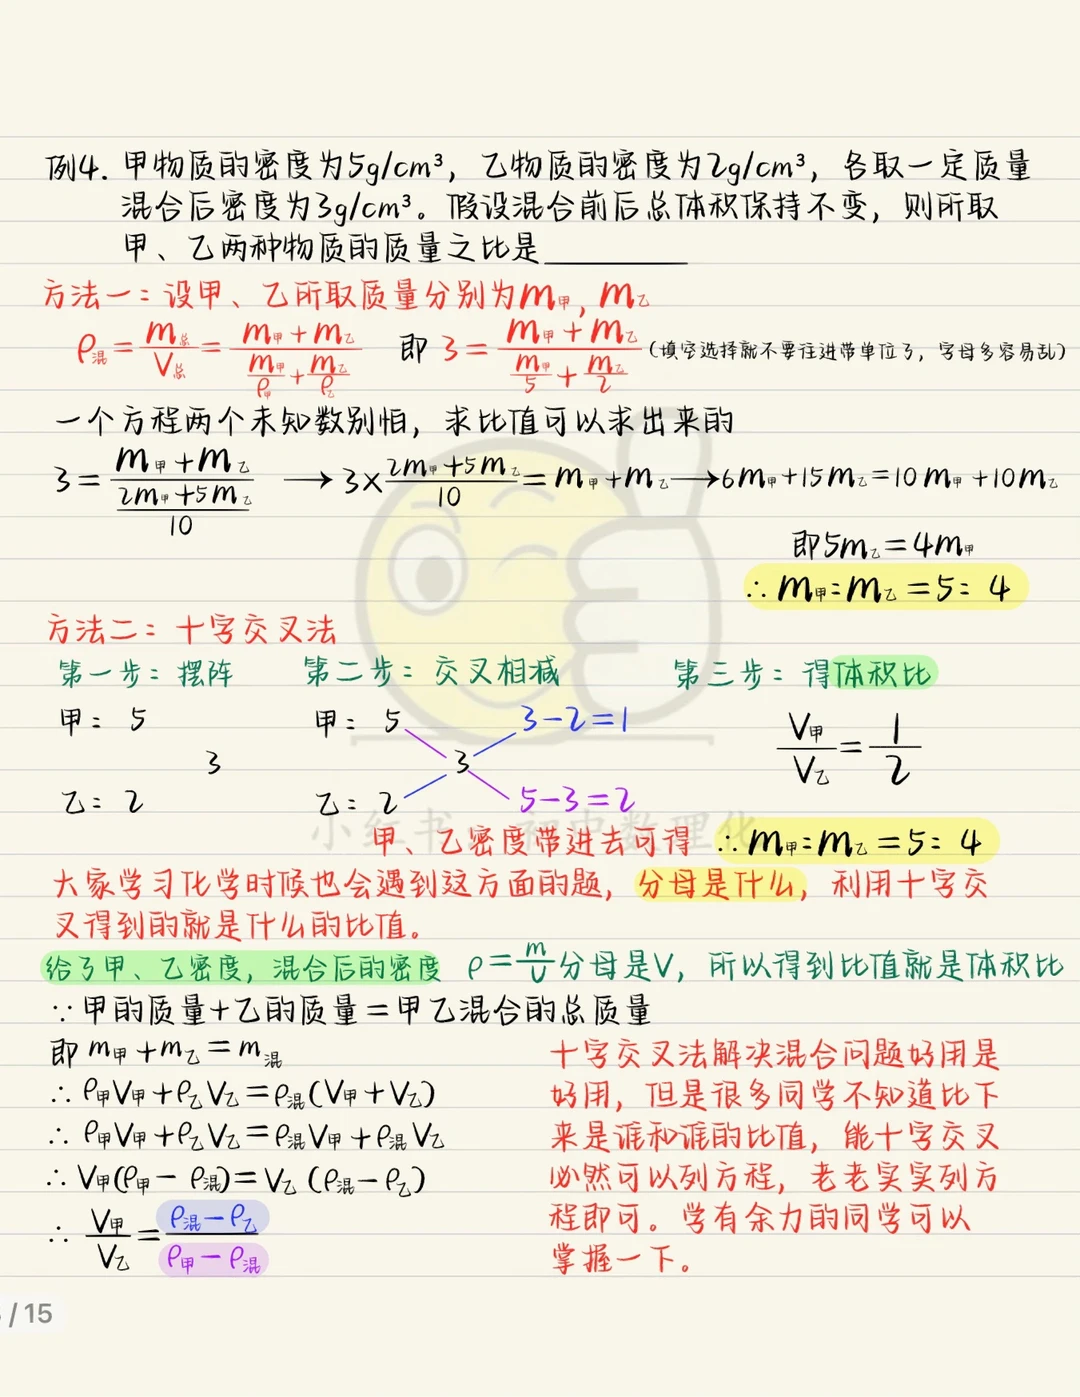 例4. 甲物质的密度为5g/cm³，乙物质的密度为2g/cm³，各取一定质量
混合后密度为3g/cm³。假设混合前后总体积保持不变，则所取
甲、乙两种物质的质量之比是________
方法一：设甲、乙所取质量分别为m甲，m乙
ρ混=m总/V总=(m甲+m乙)/(m甲/ρ甲+m乙/ρ乙) 即 3=(m甲+m乙)/(m甲/5+m乙/2)（填空选择就不要往进带单位了，字母多容易乱）
一个方程两个未知数别怕，求比值可以求出来的
3=(m甲+m乙)/((2m甲+5m乙)/10) → 3×(2m甲+5m乙)/10=m甲+m乙 → 6m甲+15m乙=10m甲+10m乙
即5m乙=4m甲
∴m甲:m乙=5:4
方法二：十字交叉法
第一步：摆阵 第二步：交叉相减 第三步：得体积比
甲：5 甲：5 3-2=1
3 3 V甲/V乙=1/2
乙：2 乙：2 5-3=2
小红书：初中数理化
甲、乙密度带进去可得 ∴m甲:m乙=5:4
大家学习化学时候也会遇到这方面的题，分母是什么，利用十字交
叉得到的就是什么的比值。
给了甲、乙密度，混合后的密度 ρ=m/V分母是V，所以得到比值就是体积比
∵甲的质量+乙的质量=甲乙混合的总质量
即m甲+m乙=m混
∴ρ甲V甲+ρ乙V乙=ρ混(V甲+V乙)
∴ρ甲V甲+ρ乙V乙=ρ混V甲+ρ混V乙
∴V甲(ρ甲-ρ混)=V乙(ρ混-ρ乙)
∴V甲/V乙=(ρ混-ρ乙)/(ρ甲-ρ混)
十字交叉法解决混合问题好用是
好用，但是很多同学不知道比下
来是谁和谁的比值，能十字交叉
必然可以列方程，老老实实列方
程即可。学有余力的同学可以
掌握一下。
/15